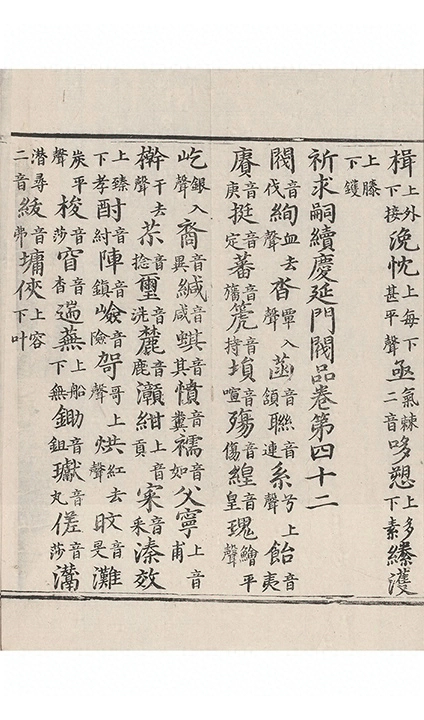 楫上外下接浼忱上每下甚平聲亟氣棘二音哆愬上多下素縧濩
上滕下鑊
祈求嗣續慶延門閥品卷第四十二
閥音伐絢血去聲沓覃入聲菡音頷聯音連系兮上聲飴音夷
賡音庚挺音定蕃音籏箎音持塤音喧殤音傷鍠音皇瑰鱠平聲
屹銀入聲裔音異緘音咸蜞音其憤音糞襦音如父寧上音甫
榦干去聲苶音捻璽音洗麓音鹿灝紺上音貢寀音采溱效
上臻下孝酎音紂陣音鎮嶮音險哿哥上聲烘紅去聲旼音旻灘
炭平聲梭音莎窅音杳遄蕪上音船下無鋤音鉏瓛音丸傞音莎灊
潛尋二音紱音弗墉俠上容下叶